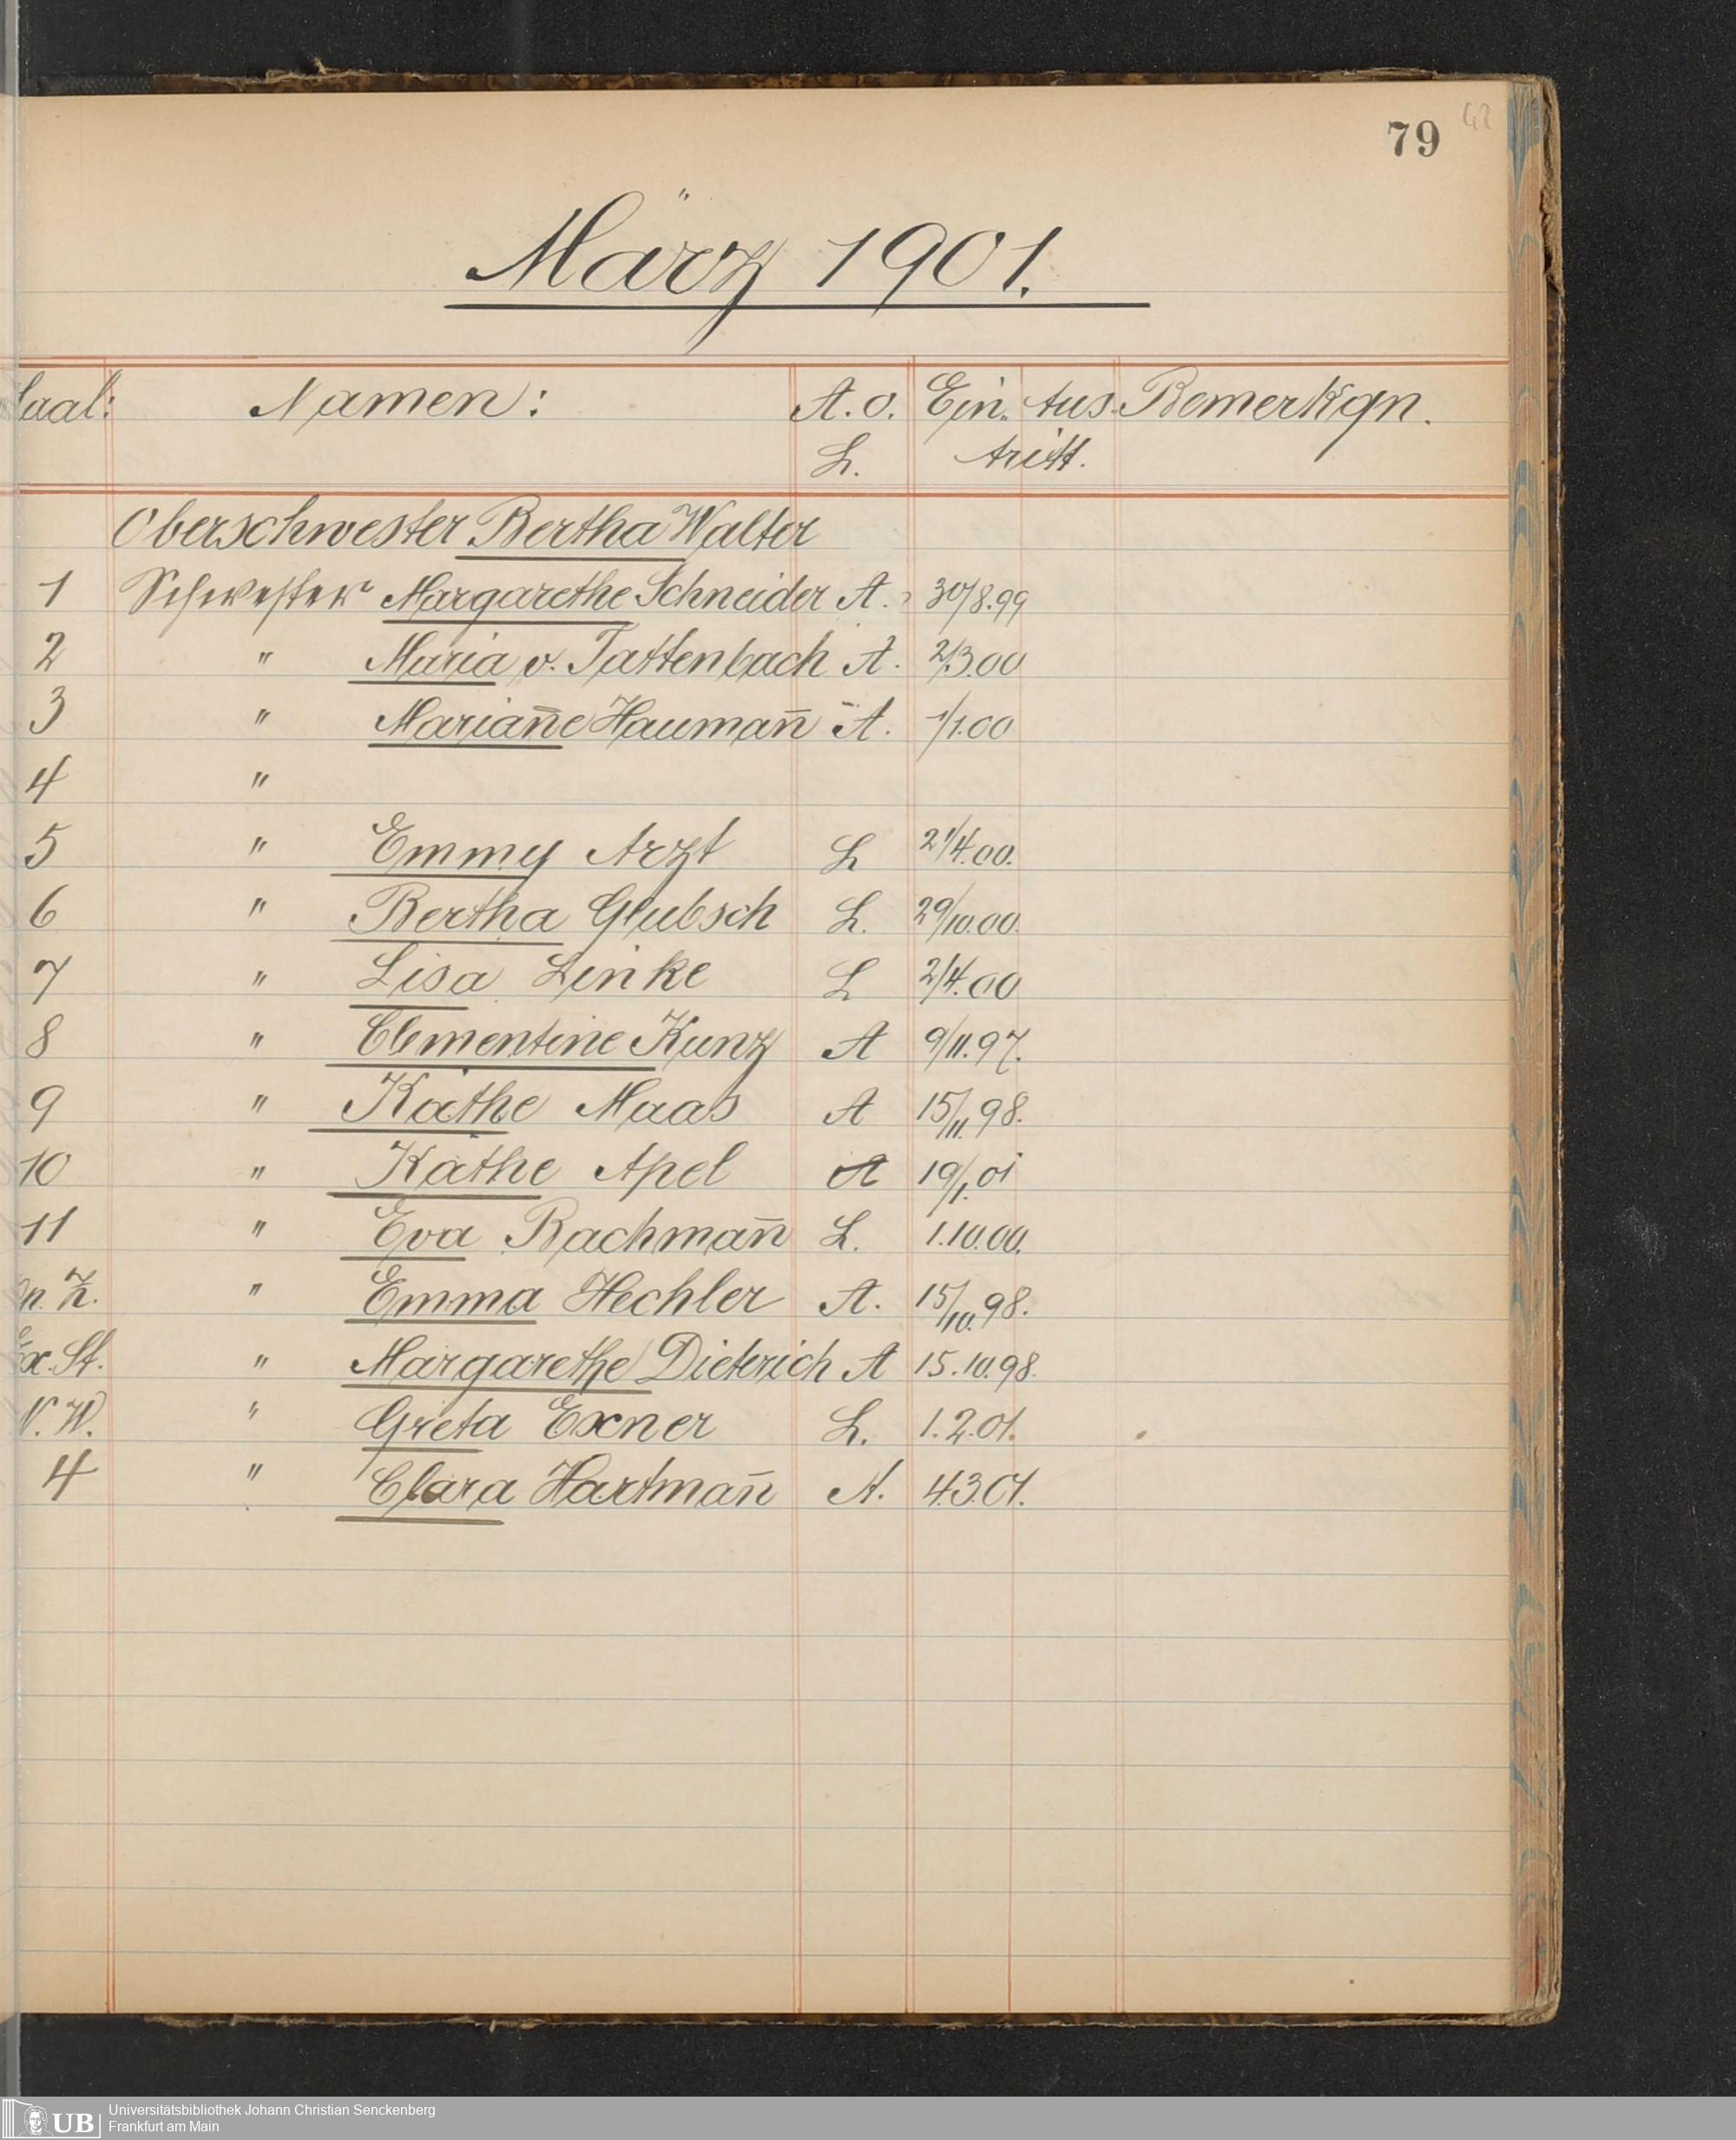 79 42
März 1901.
Saal: Namen: A. o. Ein- Aus- Bemerkgn.
L. tritt.
Oberschwester Bertha Walter
1 Schwester Margarethe Schneider A. 30/8.99
2 " Maria v. Tattenbach A. 2/3.00
3 " Mariañe Haumañ A. 1/1.00
4 "
5 " Emmy Arzt L 21/4.00.
6 " Bertha Glubsch L. 29/10.00.
7 " Lisa Linke L 2/4.00
8 " Clementine Kunz A 9/11.97.
9 " Käthe Maas A 15/11.98.
10 " Käthe Apel A 19/1.01
11 " Eva Bachmañ L. 1.10.00.
Z. " Emma Hechler A. 15/10.98.
Ex. St. " Margarethe Dieterich A 15.10.98.
N. W. " Greta Exner L. 1.2.01.
4 " Clara Hartmañ A. 4.3.01.
UB Universitätsbibliothek Johann Christian Senckenberg
Frankfurt am Main